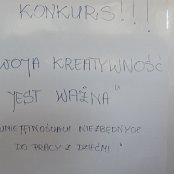 KONKURS!!!
WOJA KREATYWNOŚĆ
JEST WAŻNA"
UMIEJĘTNOŚCIACH NIEZBĘDNYCH
DO PRACY Z DZIEĆMI"